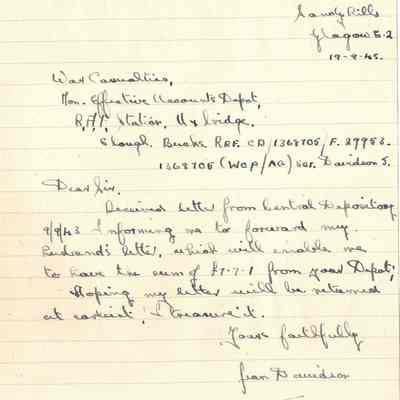 Sandy Hills
Glasgow E.2
19-9-45.
War Casualties,
Non. Effective Accounts Depot,
R.A.F. Station, Uxbridge.
Slough. Bucks REF. CD/1368705/F. 29953.
1368705 (WOP/AG) SGT. Davidson J.
Dear Sir,
Received letter from Central Depository
9/9/43 informing me to forward my
husband's letter, which will enable me
to have the sum of £7-7-1 from your Depot;
Hoping my letter will be returned
at earliest; I treasure it.
Yours faithfully
Jean Davidson